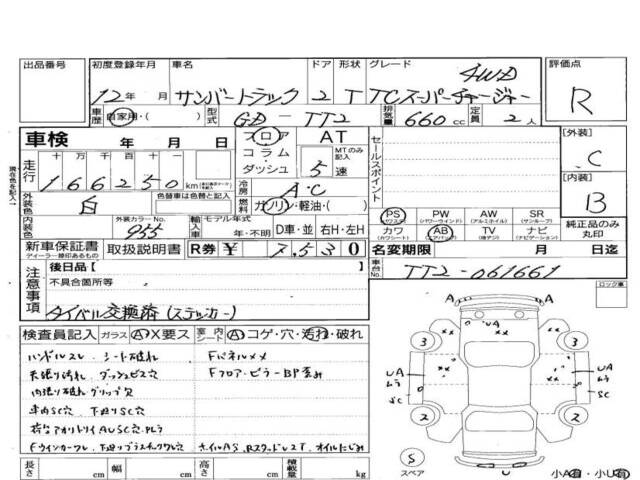 出品番号 初度登録年月 車名 ドア 形状 グレード 評価点
4WD
12年 月 サンバートラック 2 T TCスーパーチャージャー R
車歴 自家用・( ) 型式 GD-TT2 排気量 660cc 定員 2人
車検 年 月 日 フロア AT
コラム・ MTのみ記入 セールスポイント [外装] C
走行 十万 万 千 百 十 一 ダッシュ 5速
166250km 冷房 A・C [内装] B
外装色 白 色替車は色替と記入 燃料 ガソリン・軽油・( )
内装色 外装カラーNo. 955 輸入車 モデル年式 年・不明 D車・並 右H・左H
PS パワステ PW パワーウインドウ AW アルミホイル SR サンルーフ
カワ カワシート AB エアバッグ TV 地デジ ナビ ナビゲーション 純正品のみ丸印
新車保証書 ディーラー継印あるもの 取扱説明書 R券 ¥ 7,530 名変期限 年 月 日迄
注意事項 後日品[ ] 車台No. TT2-061661
不具合箇所等 ロック車
タイベル交換済(ステッカー)
検査員記入 ガラス AX要ス 室内 シート A コゲ・穴・汚れ・破れ
ハンドルスレ シート破れ Fパネルメメ
天張り汚れ ダッシュビス穴 Fフロア・ピラーBP歪み
内張り破れ グリップ欠
車内SC穴 下廻りSC穴
A A
UA
3 3
UA UA
ムラ ムラ
SC SC
2 2
S スペア
長さ cm 幅 cm 高さ cm 積載量 kg 小A有・小U有